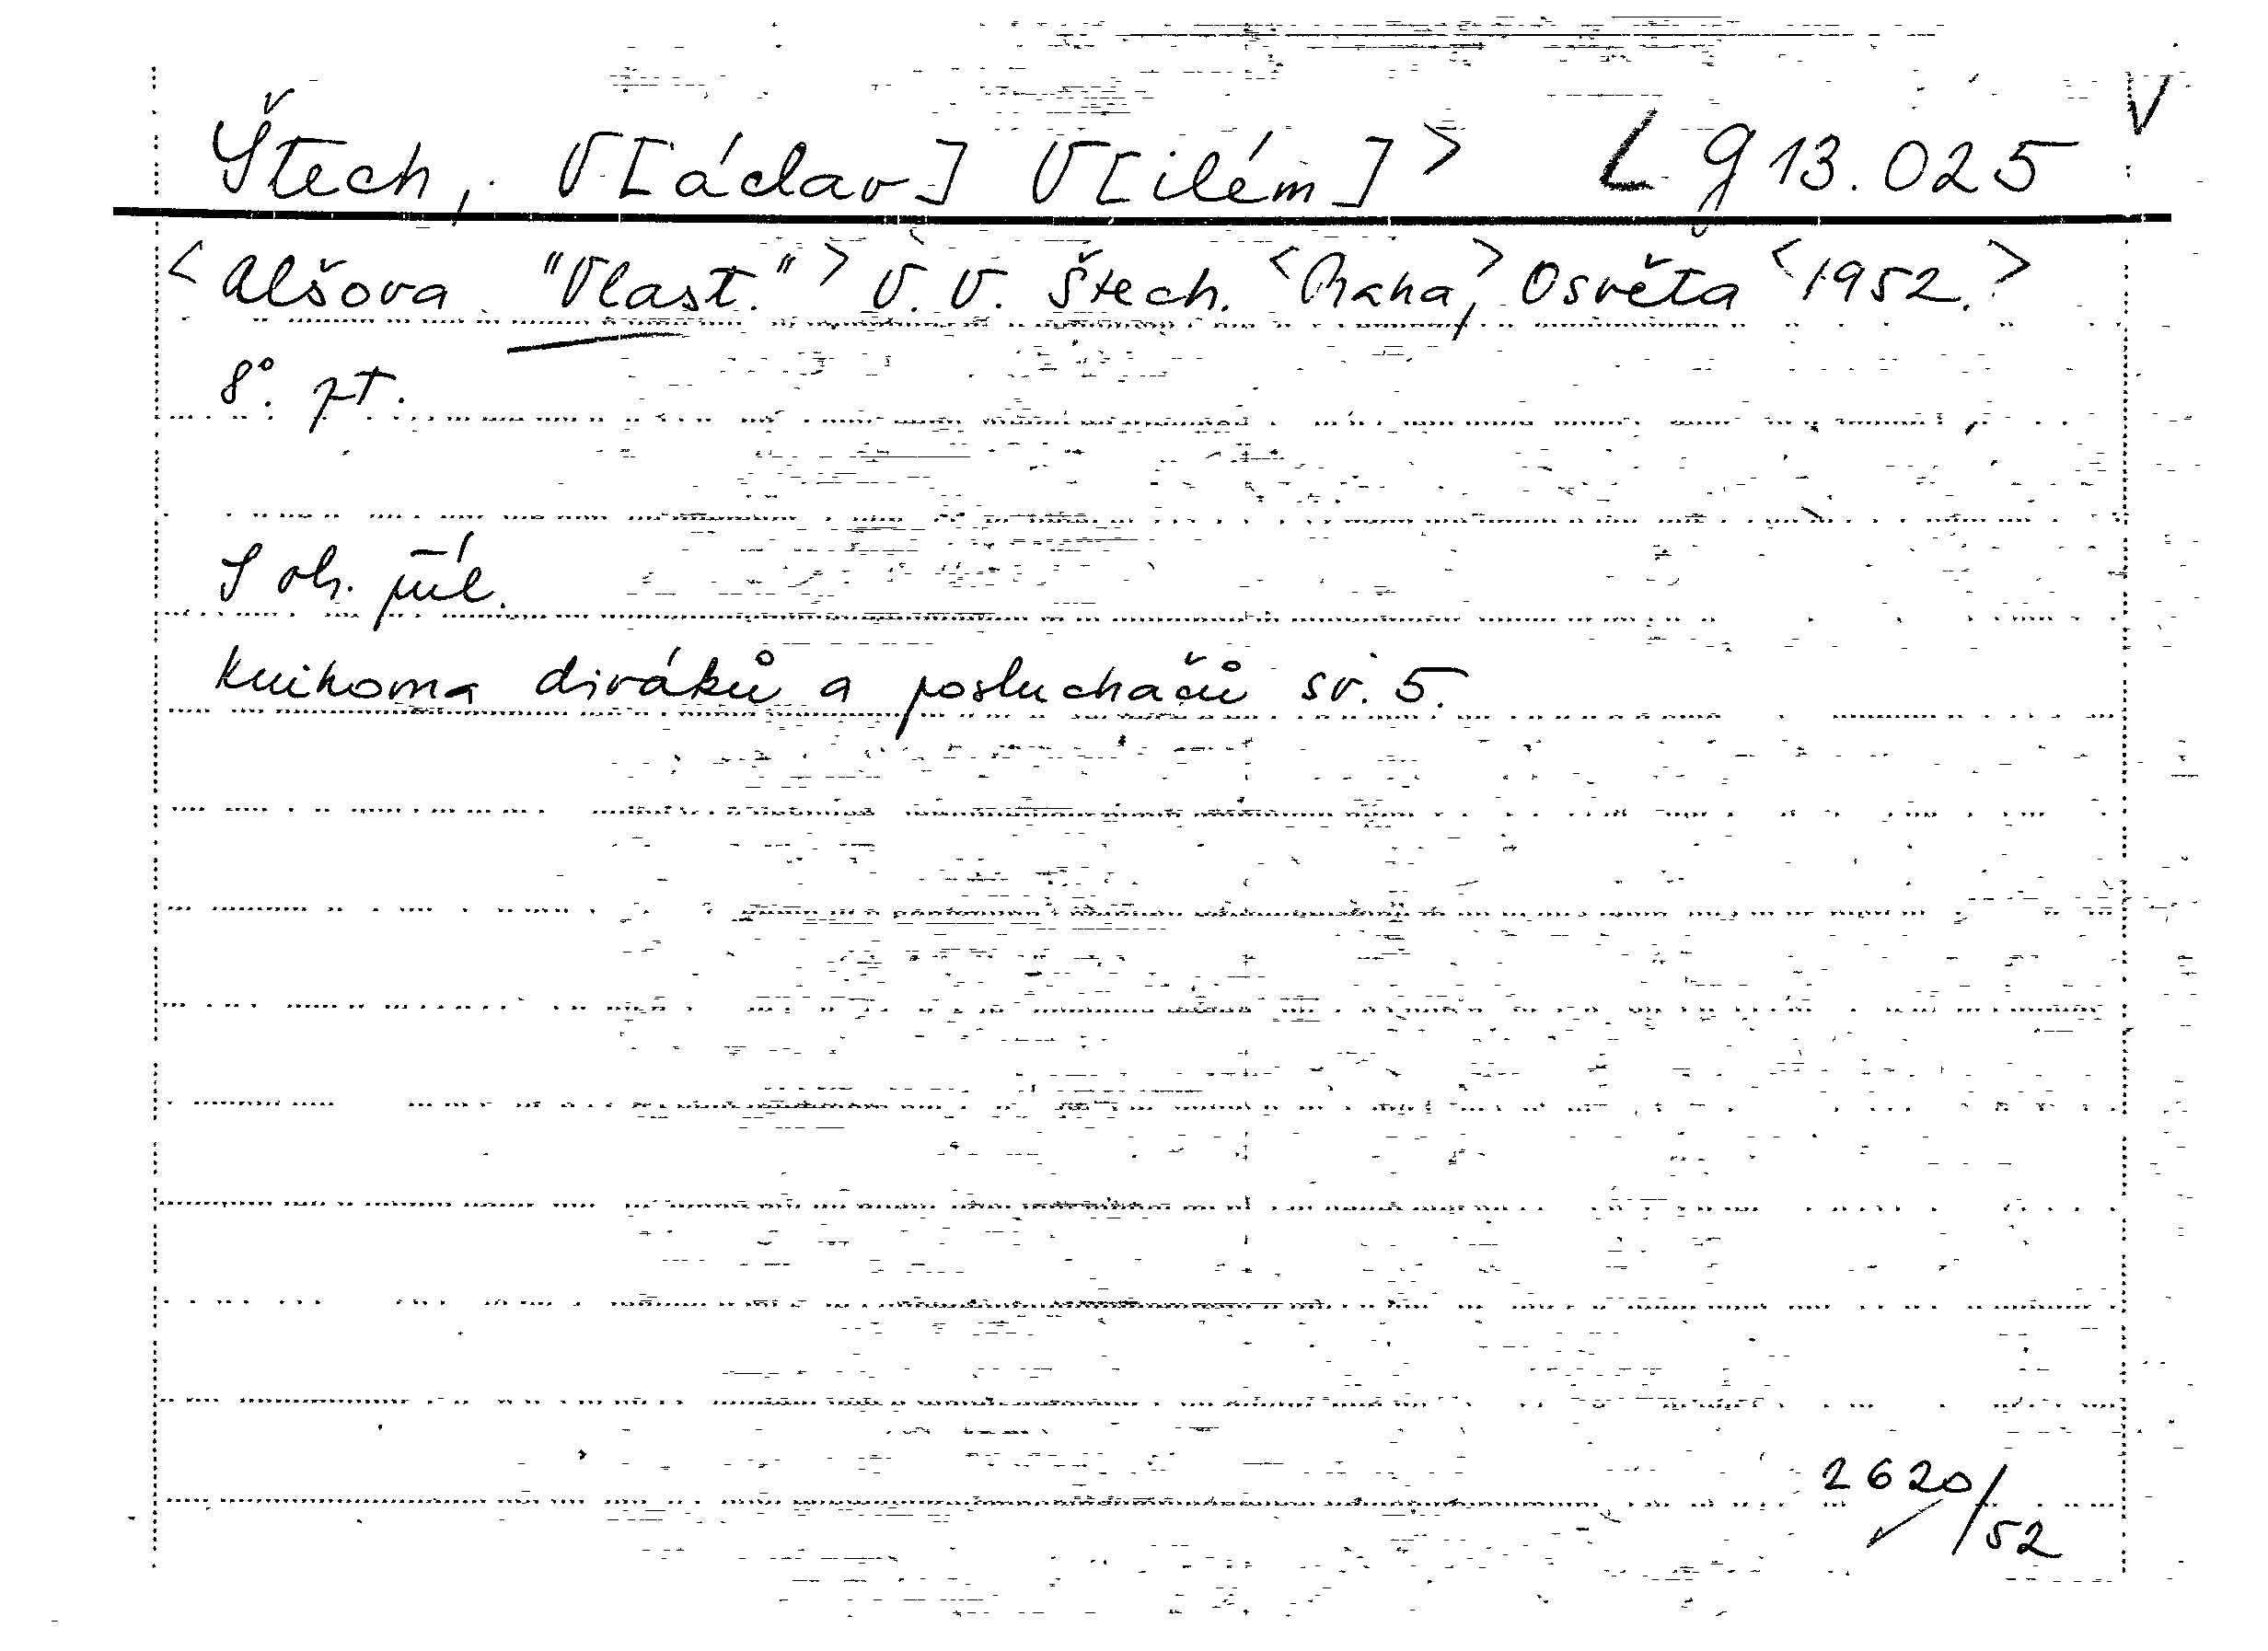 V
Štech, V[áclav] V[ilém]> L g 13.025
<Alšova "Vlast."> V. V. Štech. <Praha,> Osvěta <1952.>
8°. pt.
S ob. příl.
Knihovna diváků a posluchačů sv. 5.
2620/52